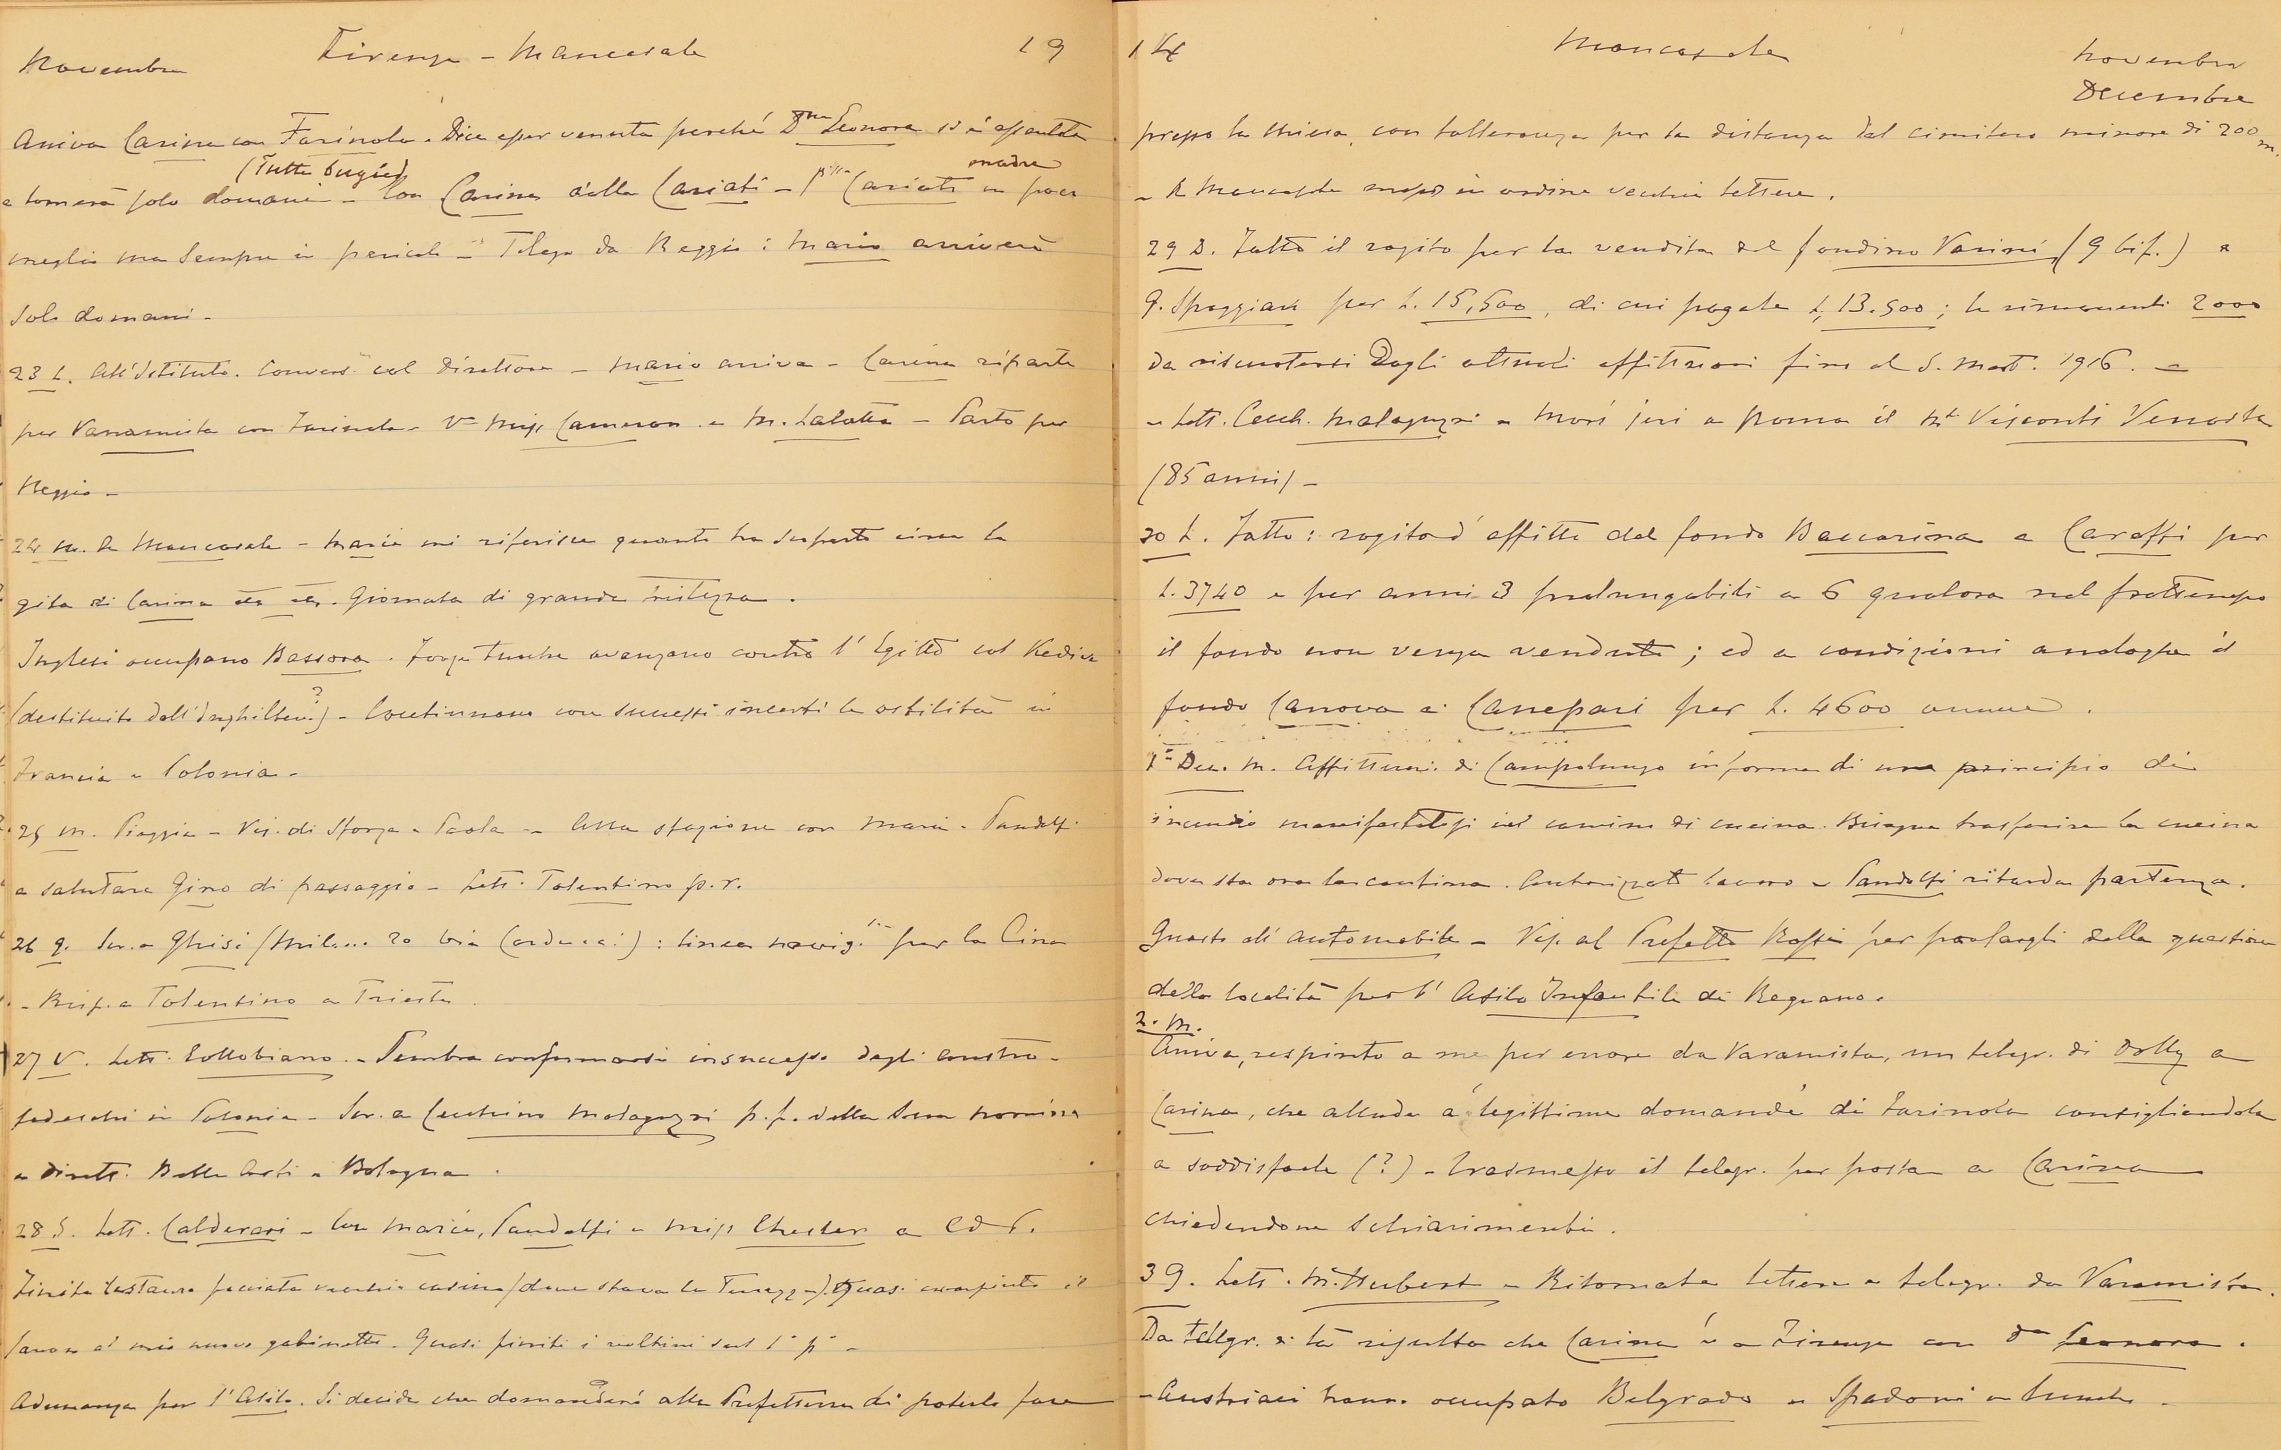 Novembre Firenze - Mancasale 19
Arriva Carina con Farinola. Dice esser venuta perché Dna Leonora si è assentata
(Tutte bugie)
madre
e tornerà solo domani - Con Carina dalla Cariati - Pssa Cariati un poco
meglio ma sempre in pericolo - Telegr. da Reggio: Mario arriverà
solo domani -
23 L. All'Istituto. Convers. col Direttore - Mario arriva - Carina riparte
per Varramista con Farinola - Va Miss Cameron e M. Lalatta - Parto per
Reggio -
24 M. A Mancasale - Mario mi riferisce quanto ha saputo circa la
gita di Carina . Giornata di grande tristezza .
Inglesi occupano Bassora . Forze turche avanzano contro l'Egitto col Kedive
(destituito dall'Inghilterra?) - Continuano con successi incerti le ostilità in
Francia e Polonia -
25 M. Pioggia - Vis. di Sforza e Paola - Alla stazione con Maria e Pandolfi
a salutare Gino di passaggio - Lett. Tolentino p.r.
26 G. Scr. a Ghisi (Milano 20 via Carducci) : linea navig. per la Cina
- Risp. a Tolentino a Trieste .
27 V. Lett. Collobiano - Sembra confermarsi insuccesso degli austro-
tedeschi in Polonia - Scr. a Cecchino Malaguzzi p.f. della sua nomina
a dirett. Belle Arti a Bologna .
28 S. Lett. Calderari - Con Maria, Pandolfi e Miss Chester a
Finito restauro facciata vecchio casino (dove stava la Turazza). Quasi compiuto il
lavoro al mio nuovo gabinetto. Quasi finiti i voltini sul 1° p° -
Adunanza per l'Asilo. Si decide che domanderò alla Prefettura di poterlo fare
1914 Mancasale Novembre
Decembre
presso la chiesa, con tolleranza per la distanza dal cimitero minore di 200 m.
- A Mancasale messo in ordine vecchie lettere .
29 D. Fatto il rogito per la vendita del fondino Varini (9 bif.) a
G. Spaggiari per L. 15,500, di cui pagate L. 13.500 ; le rimanenti 2000
da riscuotersi dagli attuali affittuari fino al S. Mart. 1916. -
- Lett. Cecch. Malaguzzi - Morì jeri a Roma il Mse Visconti Venosta
(85 anni) -
30 L. Fatto : rogito d'affitto del fondo Beccarina a Caroffi per
L. 3740 e per anni 3 prolungabili a 6 qualora nel frattempo
il fondo non venga venduto ; ed a condizioni analoghe il
fondo Canova a Canepari per L. 4600 annue .
1° Dec. M. Affittuari di Campolungo informa di un principio di
incendio manifestatosi nel camino di cucina. Bisogna trasferire la cucina
dove sta ora la cantina. Autorizzato lavoro - Pandolfi ritarda partenza.
Guasto all'automobile - Vis. al Prefetto per parlargli della questione
della località per l'Asilo Infantile di Regnano.
2. M.
Arriva, respinto a me per errore da Varramista, un telegr. di Dolly a
Carina, che allude a legittime domande di Farinola consigliandola
a soddisfarle (?) - Trasmesso il telegr. per posta a Carina
chiedendone schiarimenti .
3 G. Lett. M. Hubert - Ritornata lettera e telegr. da Varramista.
Da telegr. di là risulta che Carina è a Firenze con Da Leonora .
- Austriaci hanno occupato Belgrado - Spadoni a lunch -